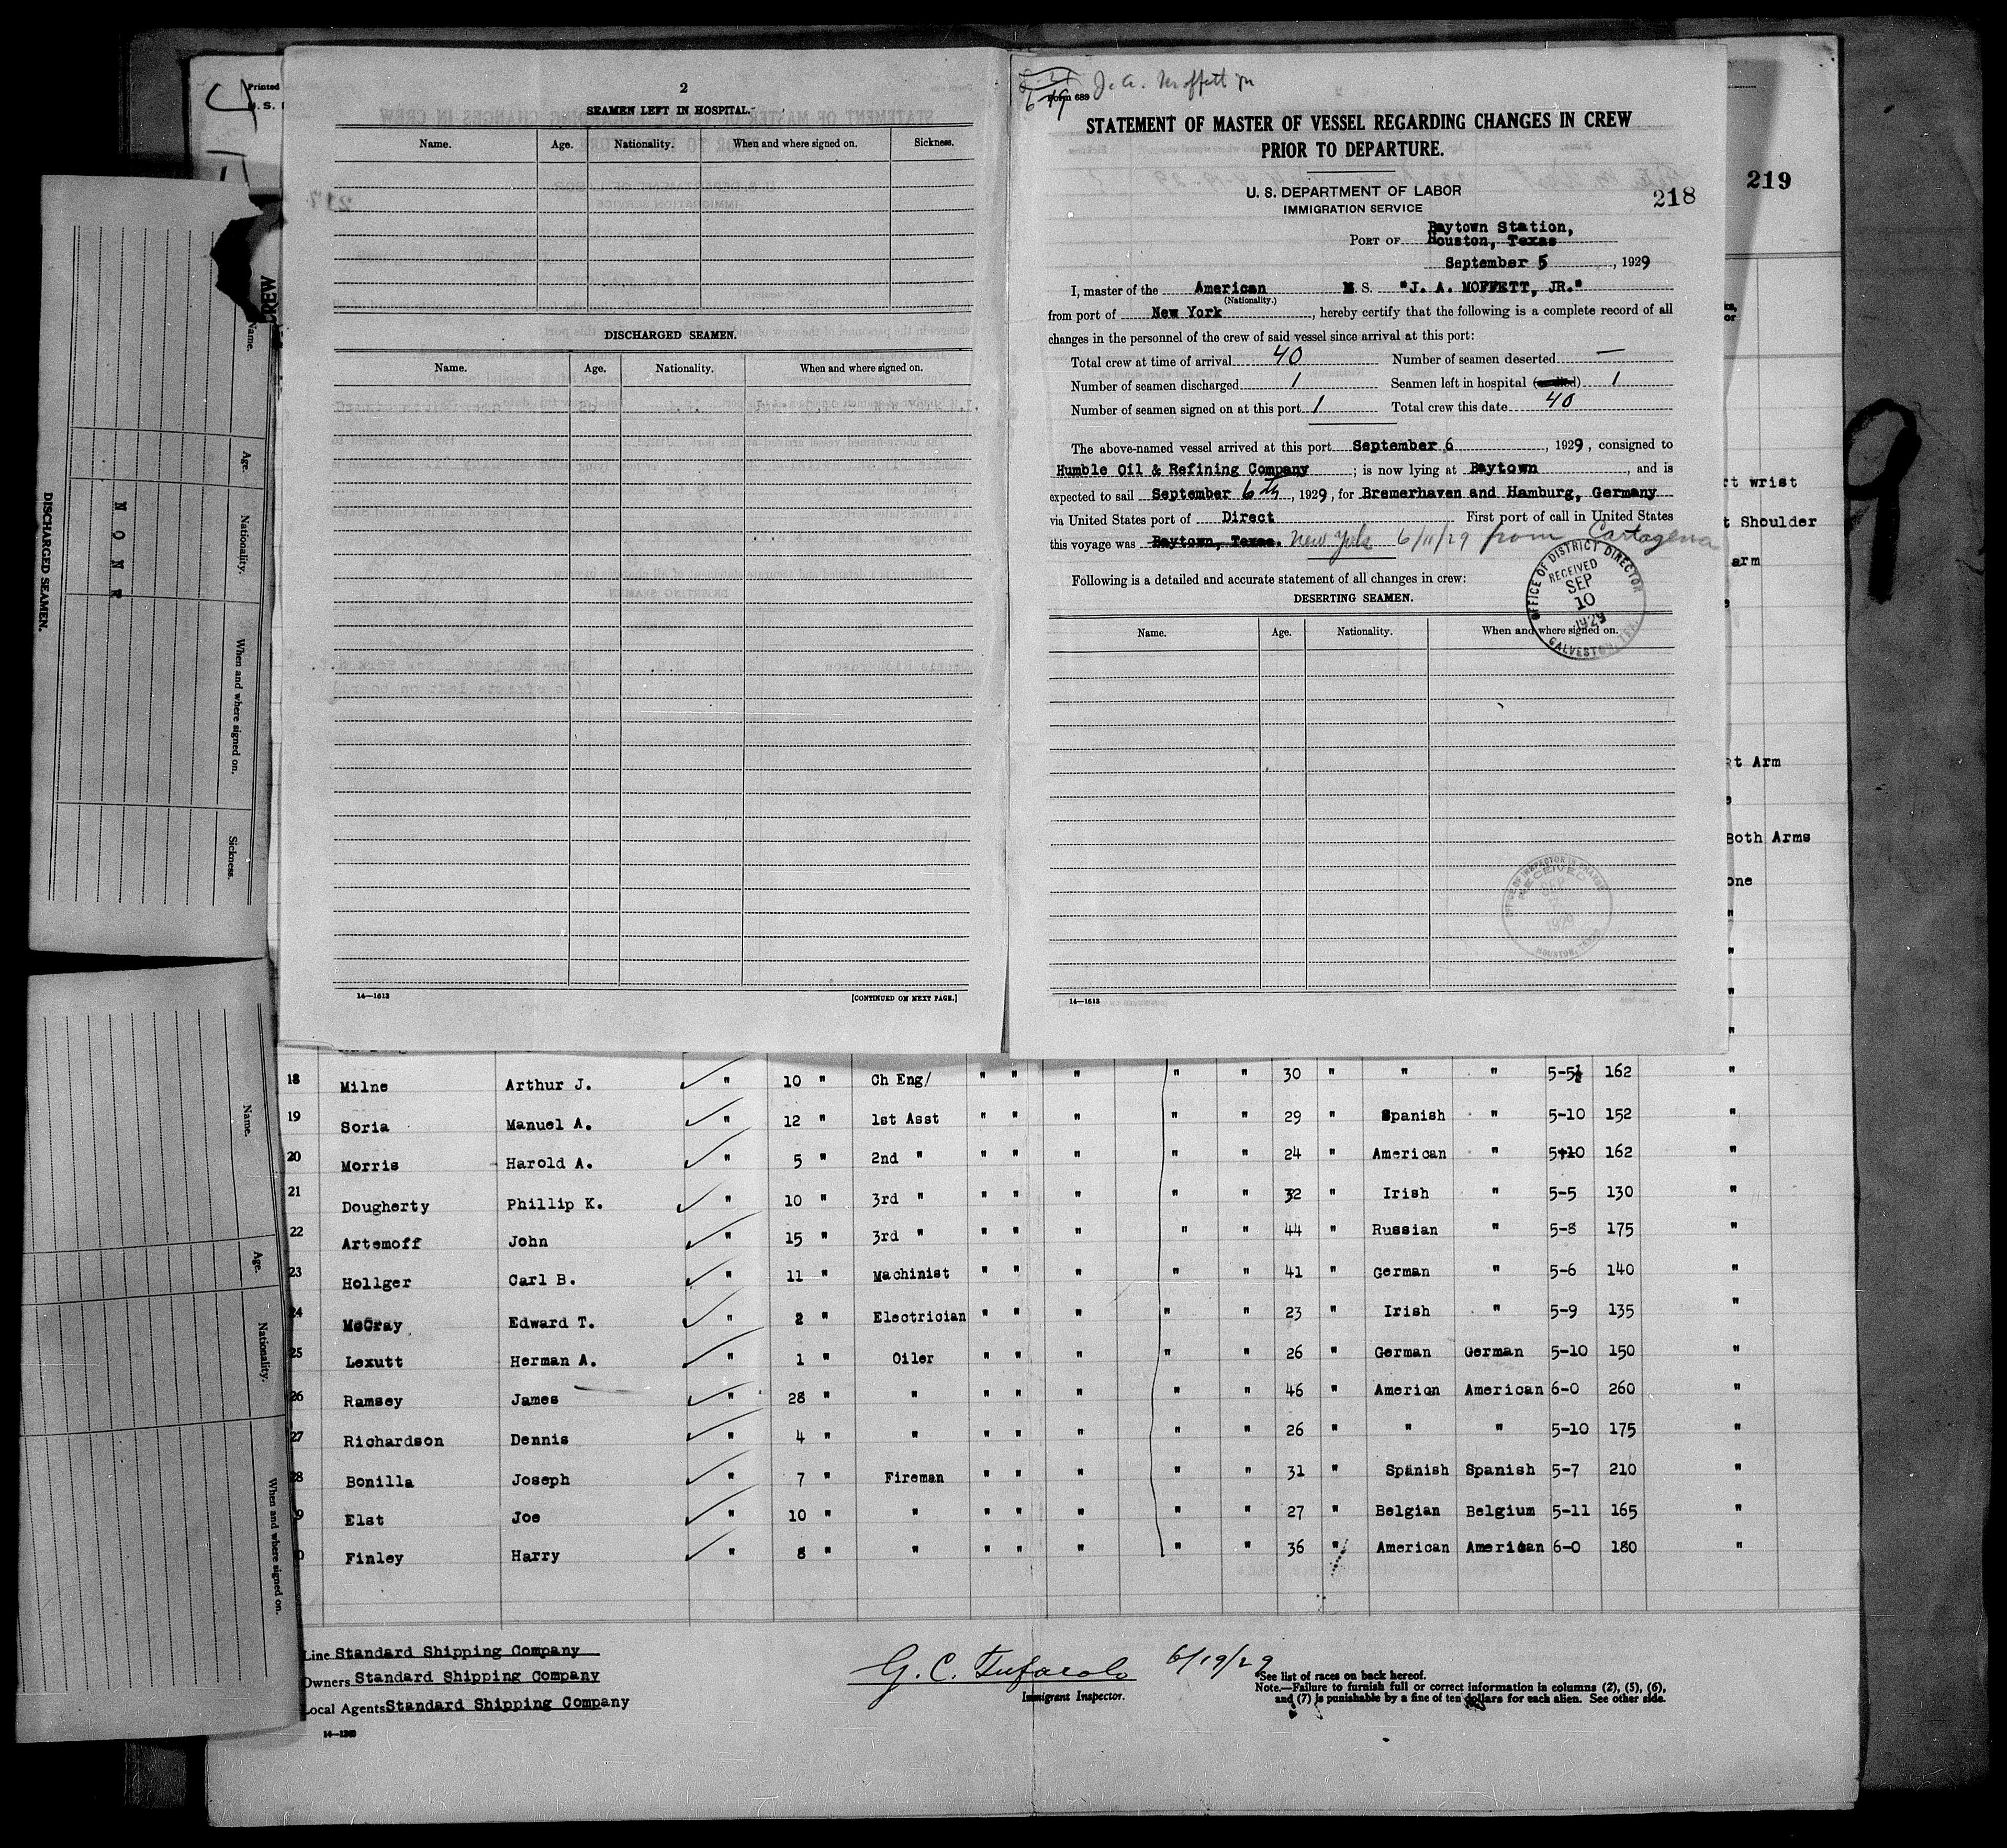 2
SEAMEN LEFT IN HOSPITAL.
Name. Age. Nationality. When and where signed on. Sickness.
DISCHARGED SEAMEN.
Name. Age. Nationality. When and where signed on.
14—1613 [CONTINUED ON NEXT PAGE.]
J. A. Moffett Jr
Form 689
STATEMENT OF MASTER OF VESSEL REGARDING CHANGES IN CREW
PRIOR TO DEPARTURE.
U. S. DEPARTMENT OF LABOR
IMMIGRATION SERVICE
218
219
Baytown Station,
PORT OF Houston, Texas
September 5, 1929
I, master of the American M. S. "J. A. MOFFETT, JR."
(Nationality.)
from port of New York, hereby certify that the following is a complete record of all
changes in the personnel of the crew of said vessel since arrival at this port:
Total crew at time of arrival 40 Number of seamen deserted —
Number of seamen discharged 1 Seamen left in hospital 1
Number of seamen signed on at this port 1 Total crew this date 40
The above-named vessel arrived at this port September 6, 1929, consigned to
Humble Oil & Refining Company; is now lying at Baytown, and is
expected to sail September 6th, 1929, for Bremerhaven and Hamburg, Germany
via United States port of Direct First port of call in United States
this voyage was Baytown, Texas. New York 6/11/29 from Cartagena
Following is a detailed and accurate statement of all changes in crew:
DESERTING SEAMEN.
Name. Age. Nationality. When and where signed on.
OFFICE OF DISTRICT DIRECTOR
RECEIVED
SEP
10
1929
GALVESTON, TEX.
OFFICE OF INSPECTOR IN CHARGE
RECEIVED
SEP
1929
HOUSTON, TEXAS
14—1613
Printed
U. S.
CREW
Name. Age. Nationality. When and where signed on. Sickness.
NONE
DISCHARGED SEAMEN.
Name. Age. Nationality. When and where signed on.
rt wrist
t Shoulder
arm
rt Arm
Both Arms
one
"
"
"
"
18 Milne Arthur J. " 10 " Ch Eng/ " " " " " 30 " " " 5-5½ 162 "
19 Soria Manuel A. " 12 " 1st Asst " " " " " 29 " Spanish " 5-10 152 "
20 Morris Harold A. " 5 " 2nd " " " " " " 24 " American " 5-10 162 "
21 Dougherty Phillip K. " 10 " 3rd " " " " " " 32 " Irish " 5-5 130 "
22 Artemoff John " 15 " 3rd " " " " " " 44 " Russian " 5-8 175 "
23 Hollger Carl B. " 11 " Machinist " " " " " 41 " German " 5-6 140 "
24 McCray Edward T. " 2 " Electrician " " " " " 23 " Irish " 5-9 135 "
25 Lexutt Herman A. " 1 " Oiler " " " " " 26 " German German 5-10 150 "
26 Ramsey James " 28 " " " " " " " 46 " Amerion American 6-0 260 "
27 Richardson Dennis " 4 " " " " " " " 26 " " " 5-10 175 "
28 Bonilla Joseph " 7 " Fireman " " " " " 31 " Spanish Spanish 5-7 210 "
9 Elst Joe " 10 " " " " " " " 27 " Belgian Belgium 5-11 165 "
0 Finley Harry " 8 " " " " " " " 36 " American American 6-0 180 "
Line Standard Shipping Company
Owners Standard Shipping Company
Local Agents Standard Shipping Company
14—1268
G. C. Tufarolo 6/19/29
Immigrant Inspector.
*See list of races on back hereof.
Note.—Failure to furnish full or correct information in columns (2), (5), (6),
and (7) is punishable by a fine of ten dollars for each alien. See other side.